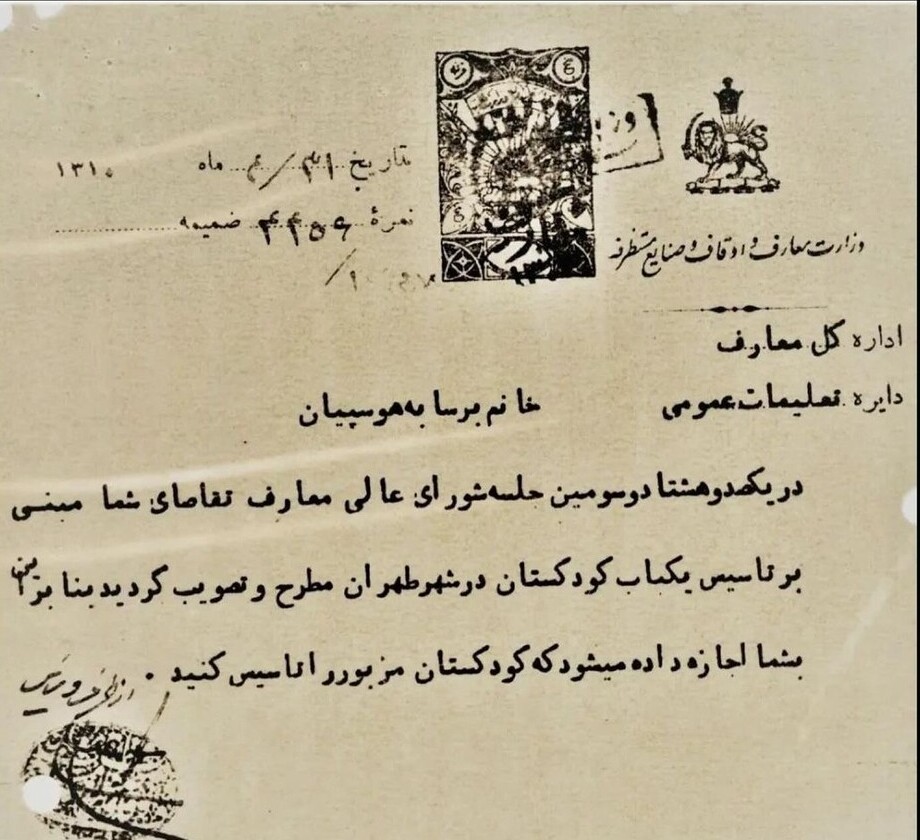 وزارت معارف و اوقاف و صنایع مستظرفه
تاریخ ۳۱ / ۶ ماه ۱۳۱۰
نمرهٔ ۴۴۵۶ ضمیمه
اداره کل معارف
دایره تعلیمات عمومی
خانم برسا به هوسپیان
در یکصدو هشتا دو سومین جلسه شورای عالی معارف تقاصای شما مبنی
بر تاسیس یکباب کودکستان در شهر طهران مطرح و تصویب گردید بنا بر
بشما اجازه داده میشود که کودکستان مزبور را تاسیس کنید .